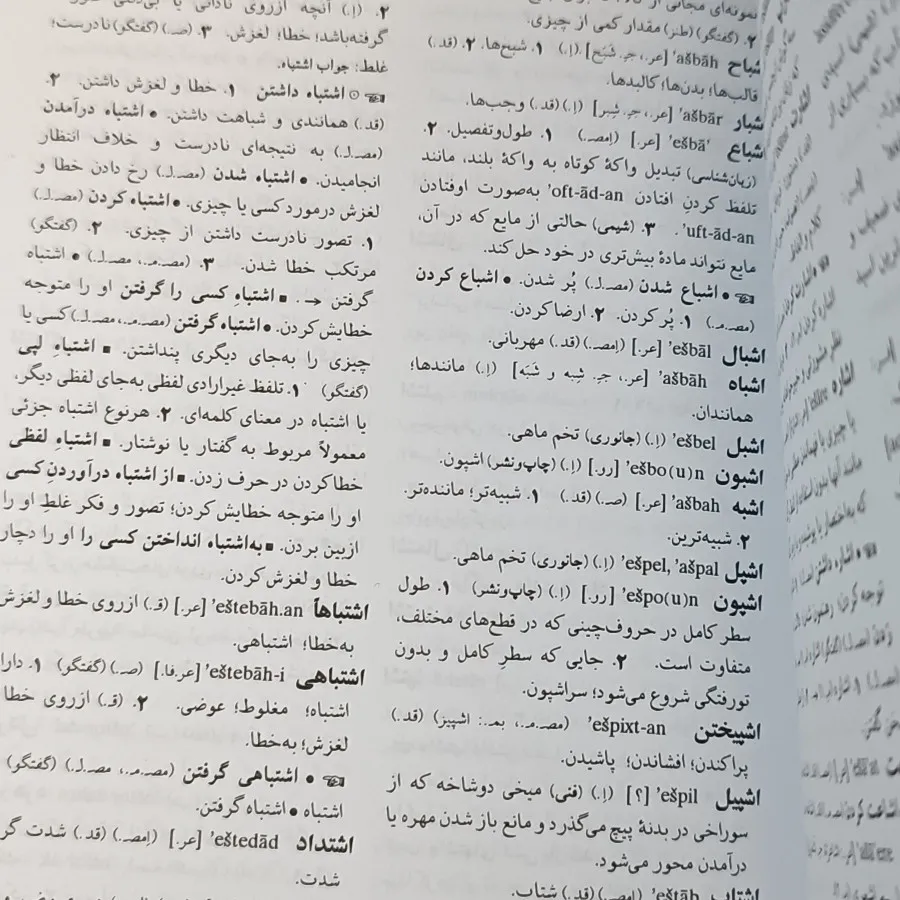 نمونه‌ای مجانی از
۲. (گفتگو) (طنز) مقدار کمی از چیزی.
شباح ašbāh' [عر.، جِ. شَبَح] (اِ.) ۱. شبح‌ها. ۲. (قد.)
قالب‌ها؛ بدن‌ها؛ کالبدها.
شبار ašbār' [عر.، جِ. شِبر] (اِ.) (قد.) وجب‌ها.
شباع 'ešbā' [عر.] (اِمصـ.) ۱. طول‌وتفصیل. ۲.
(زبان‌شناسی) تبدیل واکهٔ کوتاه به واکهٔ بلند، مانند
تلفظ کردنِ افتادن oft-ād-an' به‌صورت اوفتادن
uft-ād-an'. ۳. (شیمی) حالتی از مایع که در آن،
مایع نتواند مادهٔ بیش‌تری در خود حل کند.
• اشباع شدن (مصـ.لـ.) پُر شدن. • اشباع کردن
(مصـ.مـ.) ۱. پُر کردن. ۲. ارضا کردن.
اشبال ešbāl' [عر.] (اِمصـ.) (قد.) مهربانی.
اشباه ašbāh' [عر.، جِ. شِبه و شَبَه] (اِ.) مانندها؛
همانندان.
اشبل ešbel' (اِ.) (جانوری) تخم ماهی.
اشبون ešbo(u)n' [رو.] (اِ.) (چاپ‌ونشر) اشپون.
اشبه ašbah' [عر.] (صـ.) (قد.) ۱. شبیه‌تر؛ ماننده‌تر.
۲. شبیه‌ترین.
اشپل ešpel, 'ašpal' (اِ.) (جانوری) تخم ماهی.
اشپون ešpo(u)n' [رو.] (اِ.) (چاپ‌ونشر) ۱. طول
سطر کامل در حروف‌چینی که در قطع‌های مختلف،
متفاوت است. ۲. جایی که سطرِ کامل و بدون
تورفتگی شروع می‌شود؛ سراشپون.
اشپیختن ešpixt-an' (مصـ.مـ.، بمـ.: اشپیز) (قد.)
پراکندن؛ افشاندن؛ پاشیدن.
اشپیل ešpil' [؟] (اِ.) (فنی) میخی دوشاخه که از
سوراخی در بدنهٔ پیچ می‌گذرد و مانع باز شدن مهره یا
درآمدن محور می‌شود.
اشتاب eštāb' (اِمصـ.) (قد.) شتاب.
۲. (اِ.) آنچه ازروی نادانی یا بی‌دقتی
گرفته‌باشد؛ خطا؛ لغزش. ۳. (صـ.) (گفتگو) نادرست؛
غلط: جواب اشتباه.
⊙ اشتباه داشتن ۱. خطا و لغزش داشتن. ۲.
(قد.) همانندی و شباهت داشتن. • اشتباه درآمدن
(مصـ.لـ.) به نتیجه‌ای نادرست و خلاف انتظار
انجامیدن. • اشتباه شدن (مصـ.لـ.) رخ دادن خطا و
لغزش درمورد کسی یا چیزی. • اشتباه کردن (مصـ.لـ.)
۱. تصور نادرست داشتن از چیزی. ۲. (گفتگو)
مرتکب خطا شدن. ۳. (مصـ.مـ.، مصـ.لـ.) • اشتباه
گرفتن →. ▪ اشتباهِ کسی را گرفتن او را متوجه
خطایش کردن. • اشتباه گرفتن (مصـ.مـ.، مصـ.لـ.) کسی یا
چیزی را به‌جای دیگری پنداشتن. ▪ اشتباهِ لپی
(گفتگو) ۱. تلفظ غیرارادی لفظی به‌جای لفظی دیگر،
یا اشتباه در معنای کلمه‌ای. ۲. هرنوع اشتباه جزئی
معمولاً مربوط به گفتار یا نوشتار. ▪ اشتباهِ لفظی
خطا کردن در حرف زدن. ▪ از اشتباه درآوردنِ کسی
او را متوجه خطایش کردن؛ تصور و فکر غلطِ او را
ازبین بردن. ▪ به‌اشتباه انداختن کسی را او را دچار
خطا و لغزش کردن.
اشتباهاً eštebāh.an' [عر.] (قـ.) ازروی خطا و لغزش
به‌خطا؛ اشتباهی.
اشتباهی eštebāh-i' [عر.فا.] (صـ.) (گفتگو) ۱. دارا
اشتباه؛ مغلوط؛ عوضی. ۲. (قـ.) ازروی خطا
لغزش؛ به‌خطا.
• اشتباهی گرفتن (مصـ.مـ.، مصـ.لـ.) (گفتگو)
اشتباه • اشتباه گرفتن.
اشتداد eštedād' [عر.] (اِمصـ.) (قد.) شدت گر
شدت.